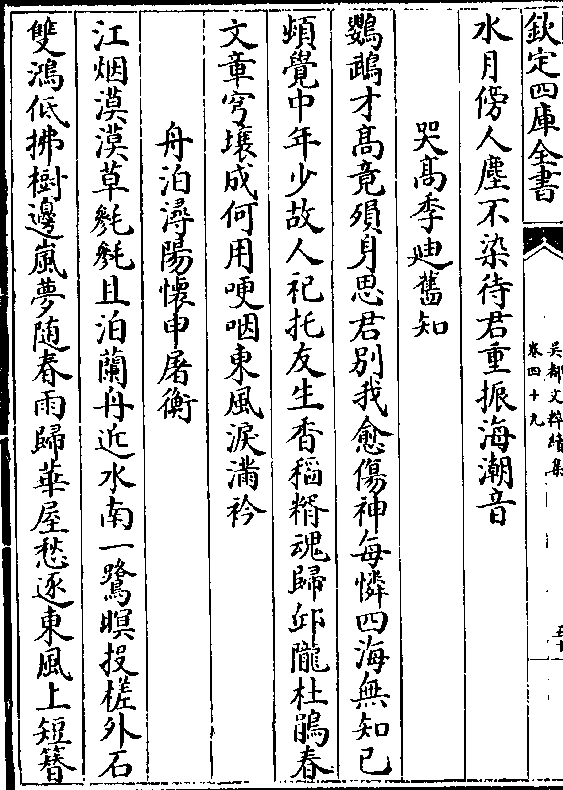 欽定四庫全書
吳都文粹續集
卷四十九
五十
水月傍人塵不染待君重振海潮音
哭髙季廸舊知
鸚鵡才髙竟殞身思君别我愈傷神每憐四海無知已
頻覺中年少故人祀托友生香稻糈魂歸邱隴杜鵑春
文章穹壤成何用哽咽東風淚滿衿
舟泊潯陽懐申屠衡
江烟漠漠草毿毿且泊蘭舟近水南一鷺暝投槎外石
雙鴻低拂樹邊嵐夢随春雨歸華屋愁逐東風上短簪